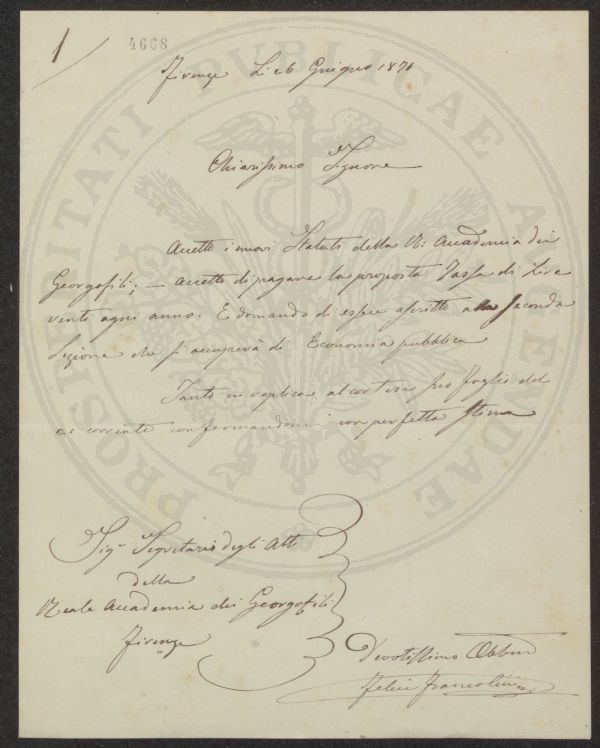 1
4668
Firenze Li 26 Giugno 1871
Chiarissimo Signore
Accetto i nuovi Statuti della R: Accademia dei
Georgofili; — accetto di pagare la proposta Tassa di Lire
venti ogni anno. E domando di essere ascritto alla seconda
Sezione che si occuperà di Economia pubblica
Tanto in replica al cortese suo foglio del
corrente confermandomi con perfetta stima
Sigr Segretario degli Atti
della
Reale Accademia dei Georgofili
Firenze
Devotissimo Obbmo
Felice Francolini
PROSPERITATI PUBLICAE AUGENDAE